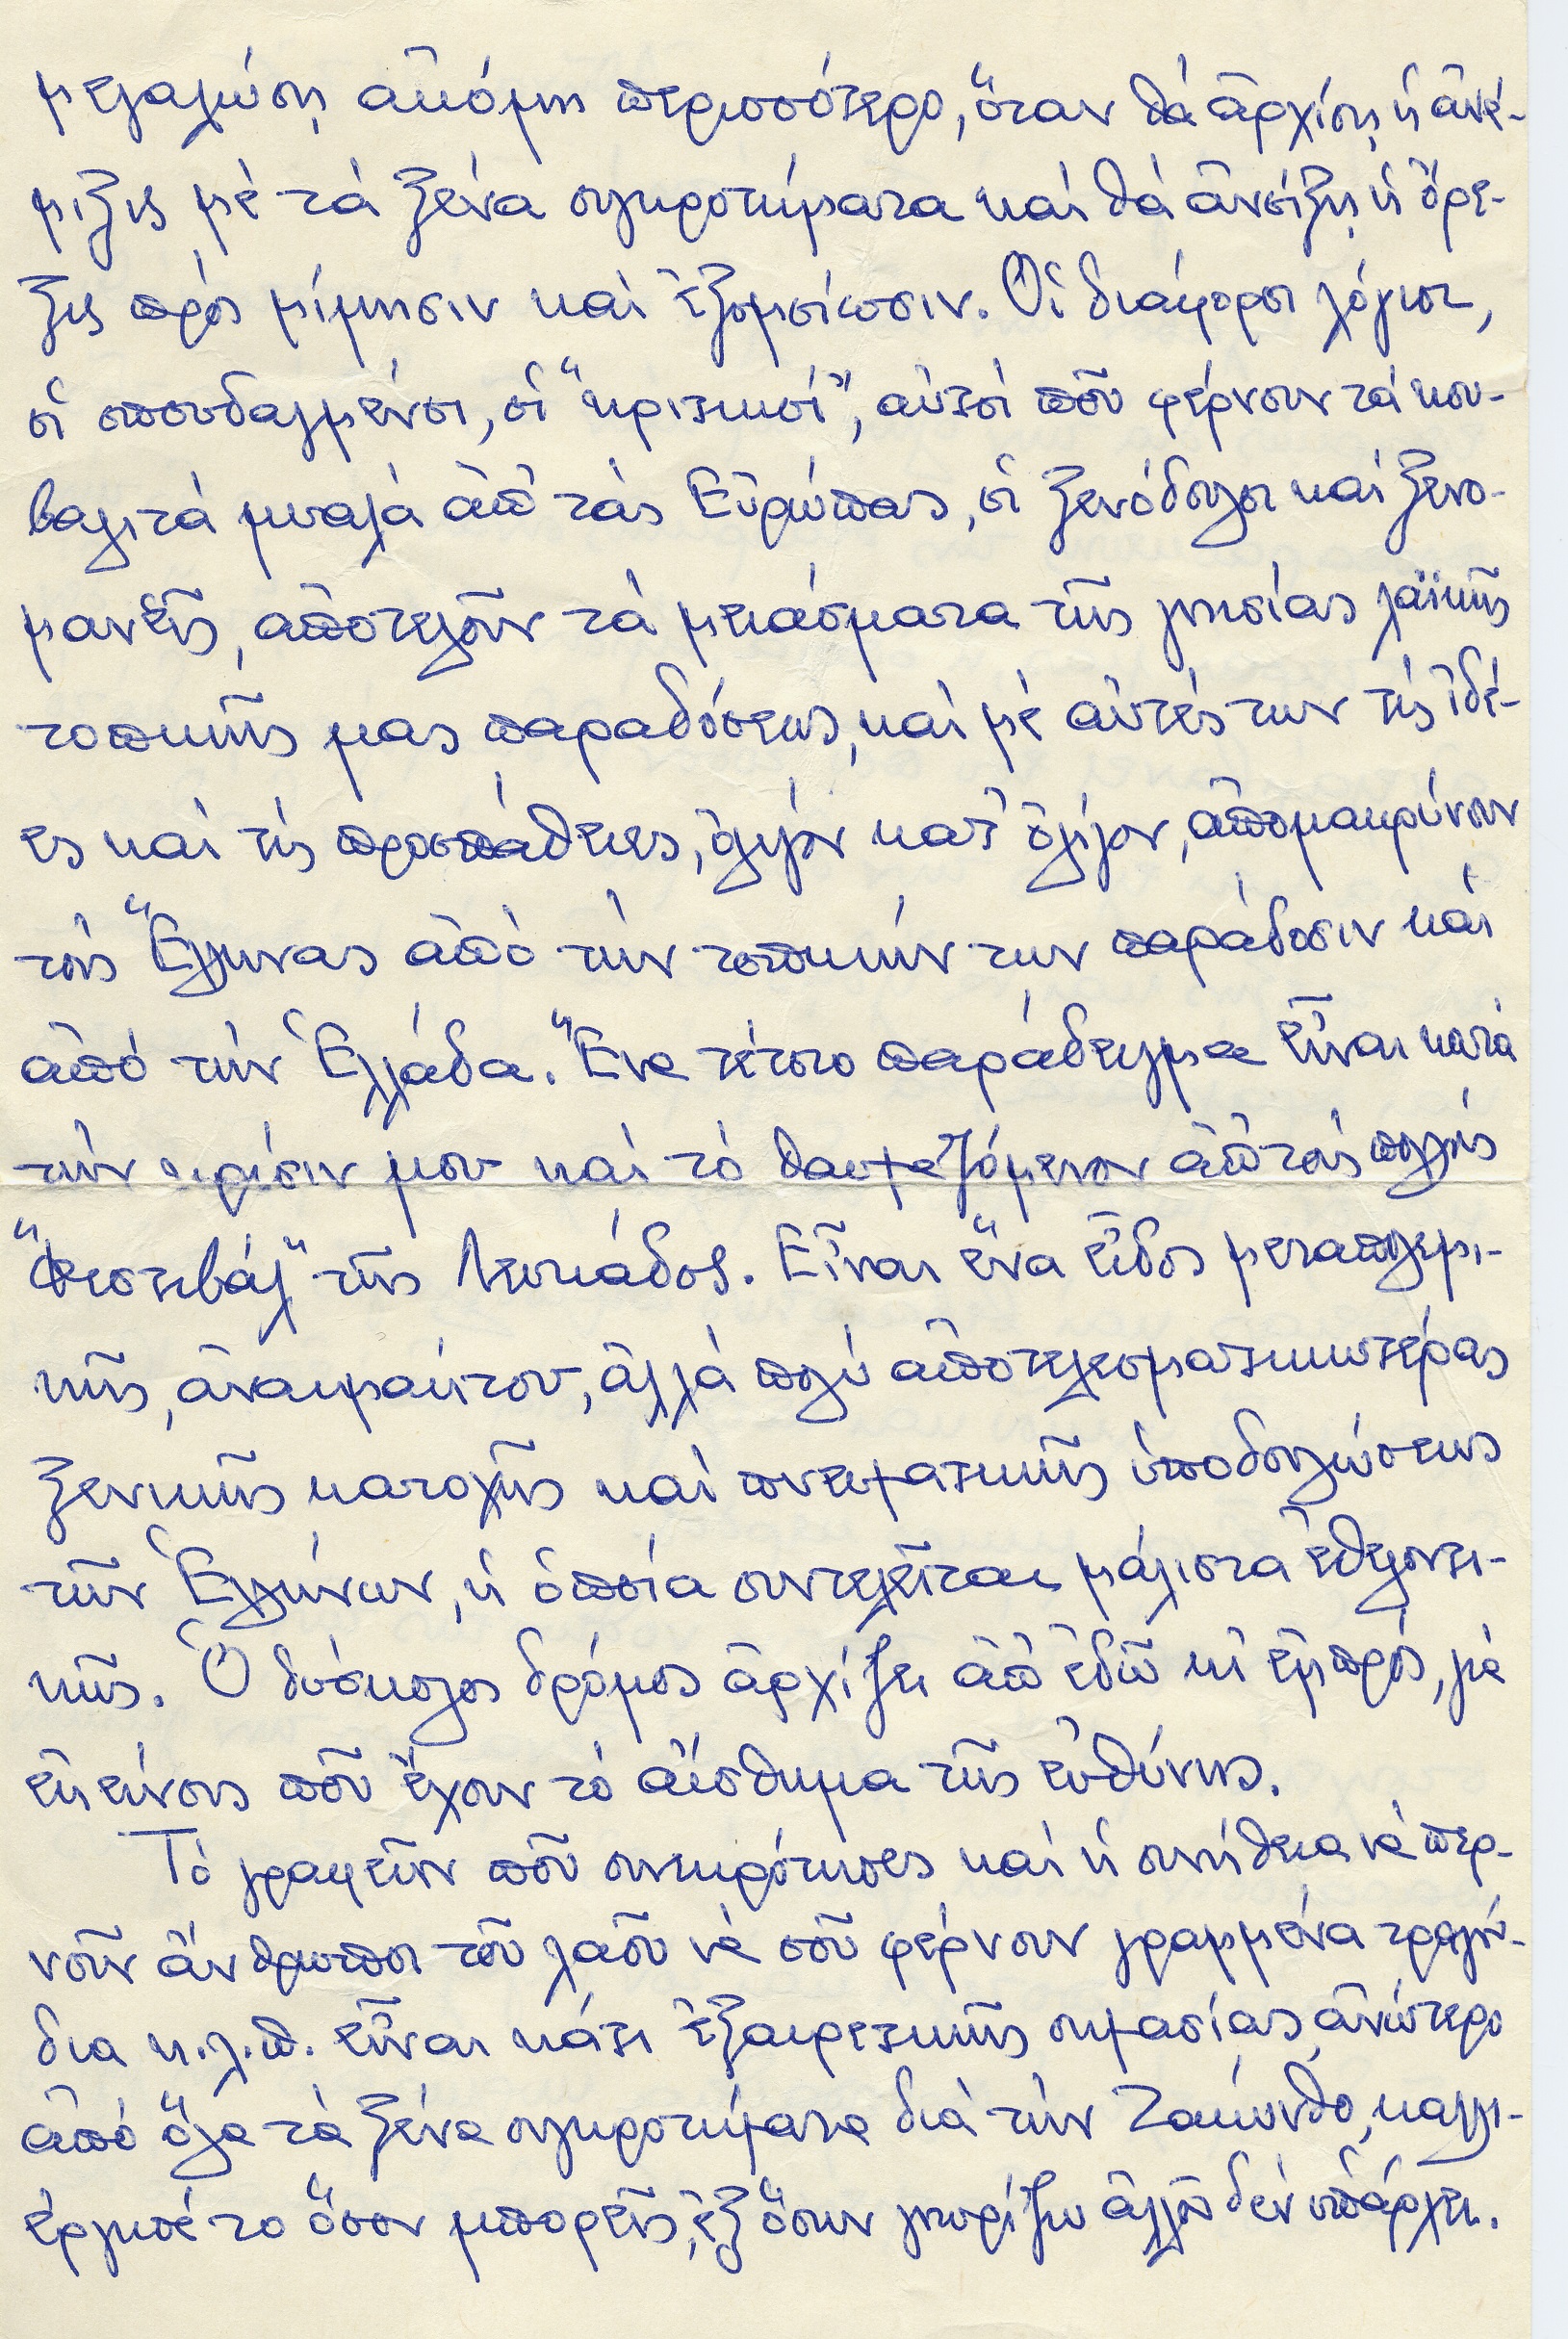 μεγαλώσῃ ἀκόμη περισσότερο, ὅταν θά ἀρχίσῃ ἡ ἀνά-
μιξις μέ τά ξένα συγκροτήματα καί θά ἀνοίξῃ ἡ ὄρε-
ξις πρός μίμησιν καί ἐξομοίωσιν. Οἱ διάφοροι λόγιοι,
οἱ σπουδαγμένοι, οἱ "κριτικοί", αὐτοί ποῦ φέρνουν τά κου-
βαλιτά μυαλά ἀπ' τάς Εὐρώπας, οἱ ξενόδουλοι καί ξενο-
μανεῖς, ἀποτελοῦν τά μιάσματα τῆς γνησίας λαϊκῆς
τοπικῆς μας παραδόσεως, καί μέ αὐτές των τίς ἰδέ-
ες καί τίς προσπάθειες, ὀλίγον κατ' ὀλίγον, ἀπομακρύνουν
τούς Ἕλληνας ἀπό τήν τοπικήν των παράδοσιν καί
ἀπό τήν Ἑλλάδα. Ἕνα τέτοιο παράδειγμα εἶναι κατά
τήν κρίσιν μου καί τό θαυμαζόμενον ἀπ' τούς πολλούς
"Φεστιβάλ" τῆς Λευκάδος. Εἶναι ἕνα εἶδος μεταπολεμι-
κῆς, ἀναιμάκτου, ἀλλά πολύ ἀποτελεσματικωτέρας
ξενικῆς κατοχῆς καί πνευματικῆς ὑποδουλώσεως
τῶν Ἑλλήνων, ἡ ὁποία συντελεῖται μάλιστα ἐθελοντι-
κῶς. Ὁ δύσκολος δρόμος ἀρχίζει ἀπ' ἐδῶ κι' ἐμπρός, μέ
ἐκείνους ποῦ ἔχουν τό αἴσθημα τῆς εὐθύνης.
Τό γραφεῖον ποῦ συνεκρότησες καί ἡ συνήθεια νά περ-
νοῦν ἄνθρωποι τοῦ λαοῦ νά σοῦ φέρνουν γραμμένα τραγού-
δια κ.λ.π. εἶναι κάτι ἐξαιρετικῆς σημασίας, ἀνώτερο
ἀπό ὅλα τά ξένα συγκροτήματα διά τήν Ζάκυνθο, καλλι-
έργησέ το ὅσον μπορεῖς, ἐξ ὅσων γνωρίζω ἀλλοῦ δέν ὑπάρχει.